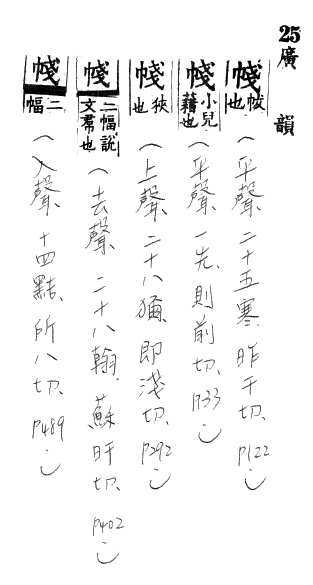 25 廣韻
帴 帗也（平聲、二十五寒、昨干切、P122。）
帴 小兒藉也（平聲、一先、則前切、P133。）
帴 狹也（上聲、二十八獮、即淺切、P292。）
帴 二幅說文帬也（去聲、二十八翰、蘇旰切、P402。）
帴 二幅（入聲、十四黠、所八切、P489。）